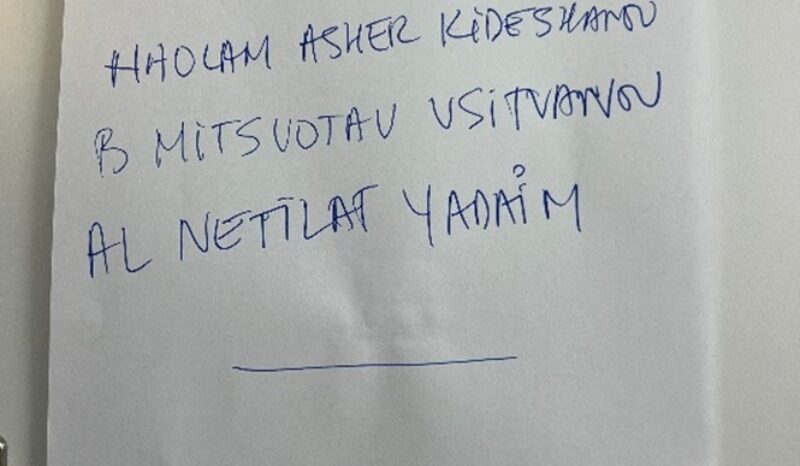 HHOLAM ASHER KIDESHANOU
B MITSVOTAV VSITVANOU
AL NETILAT YADAIM